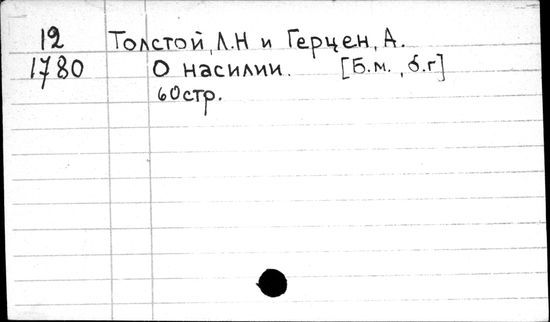 12 Толстой, Л.Н и Герцен, А.
1780 О насилии. [Б.м., б.г]
60стр.